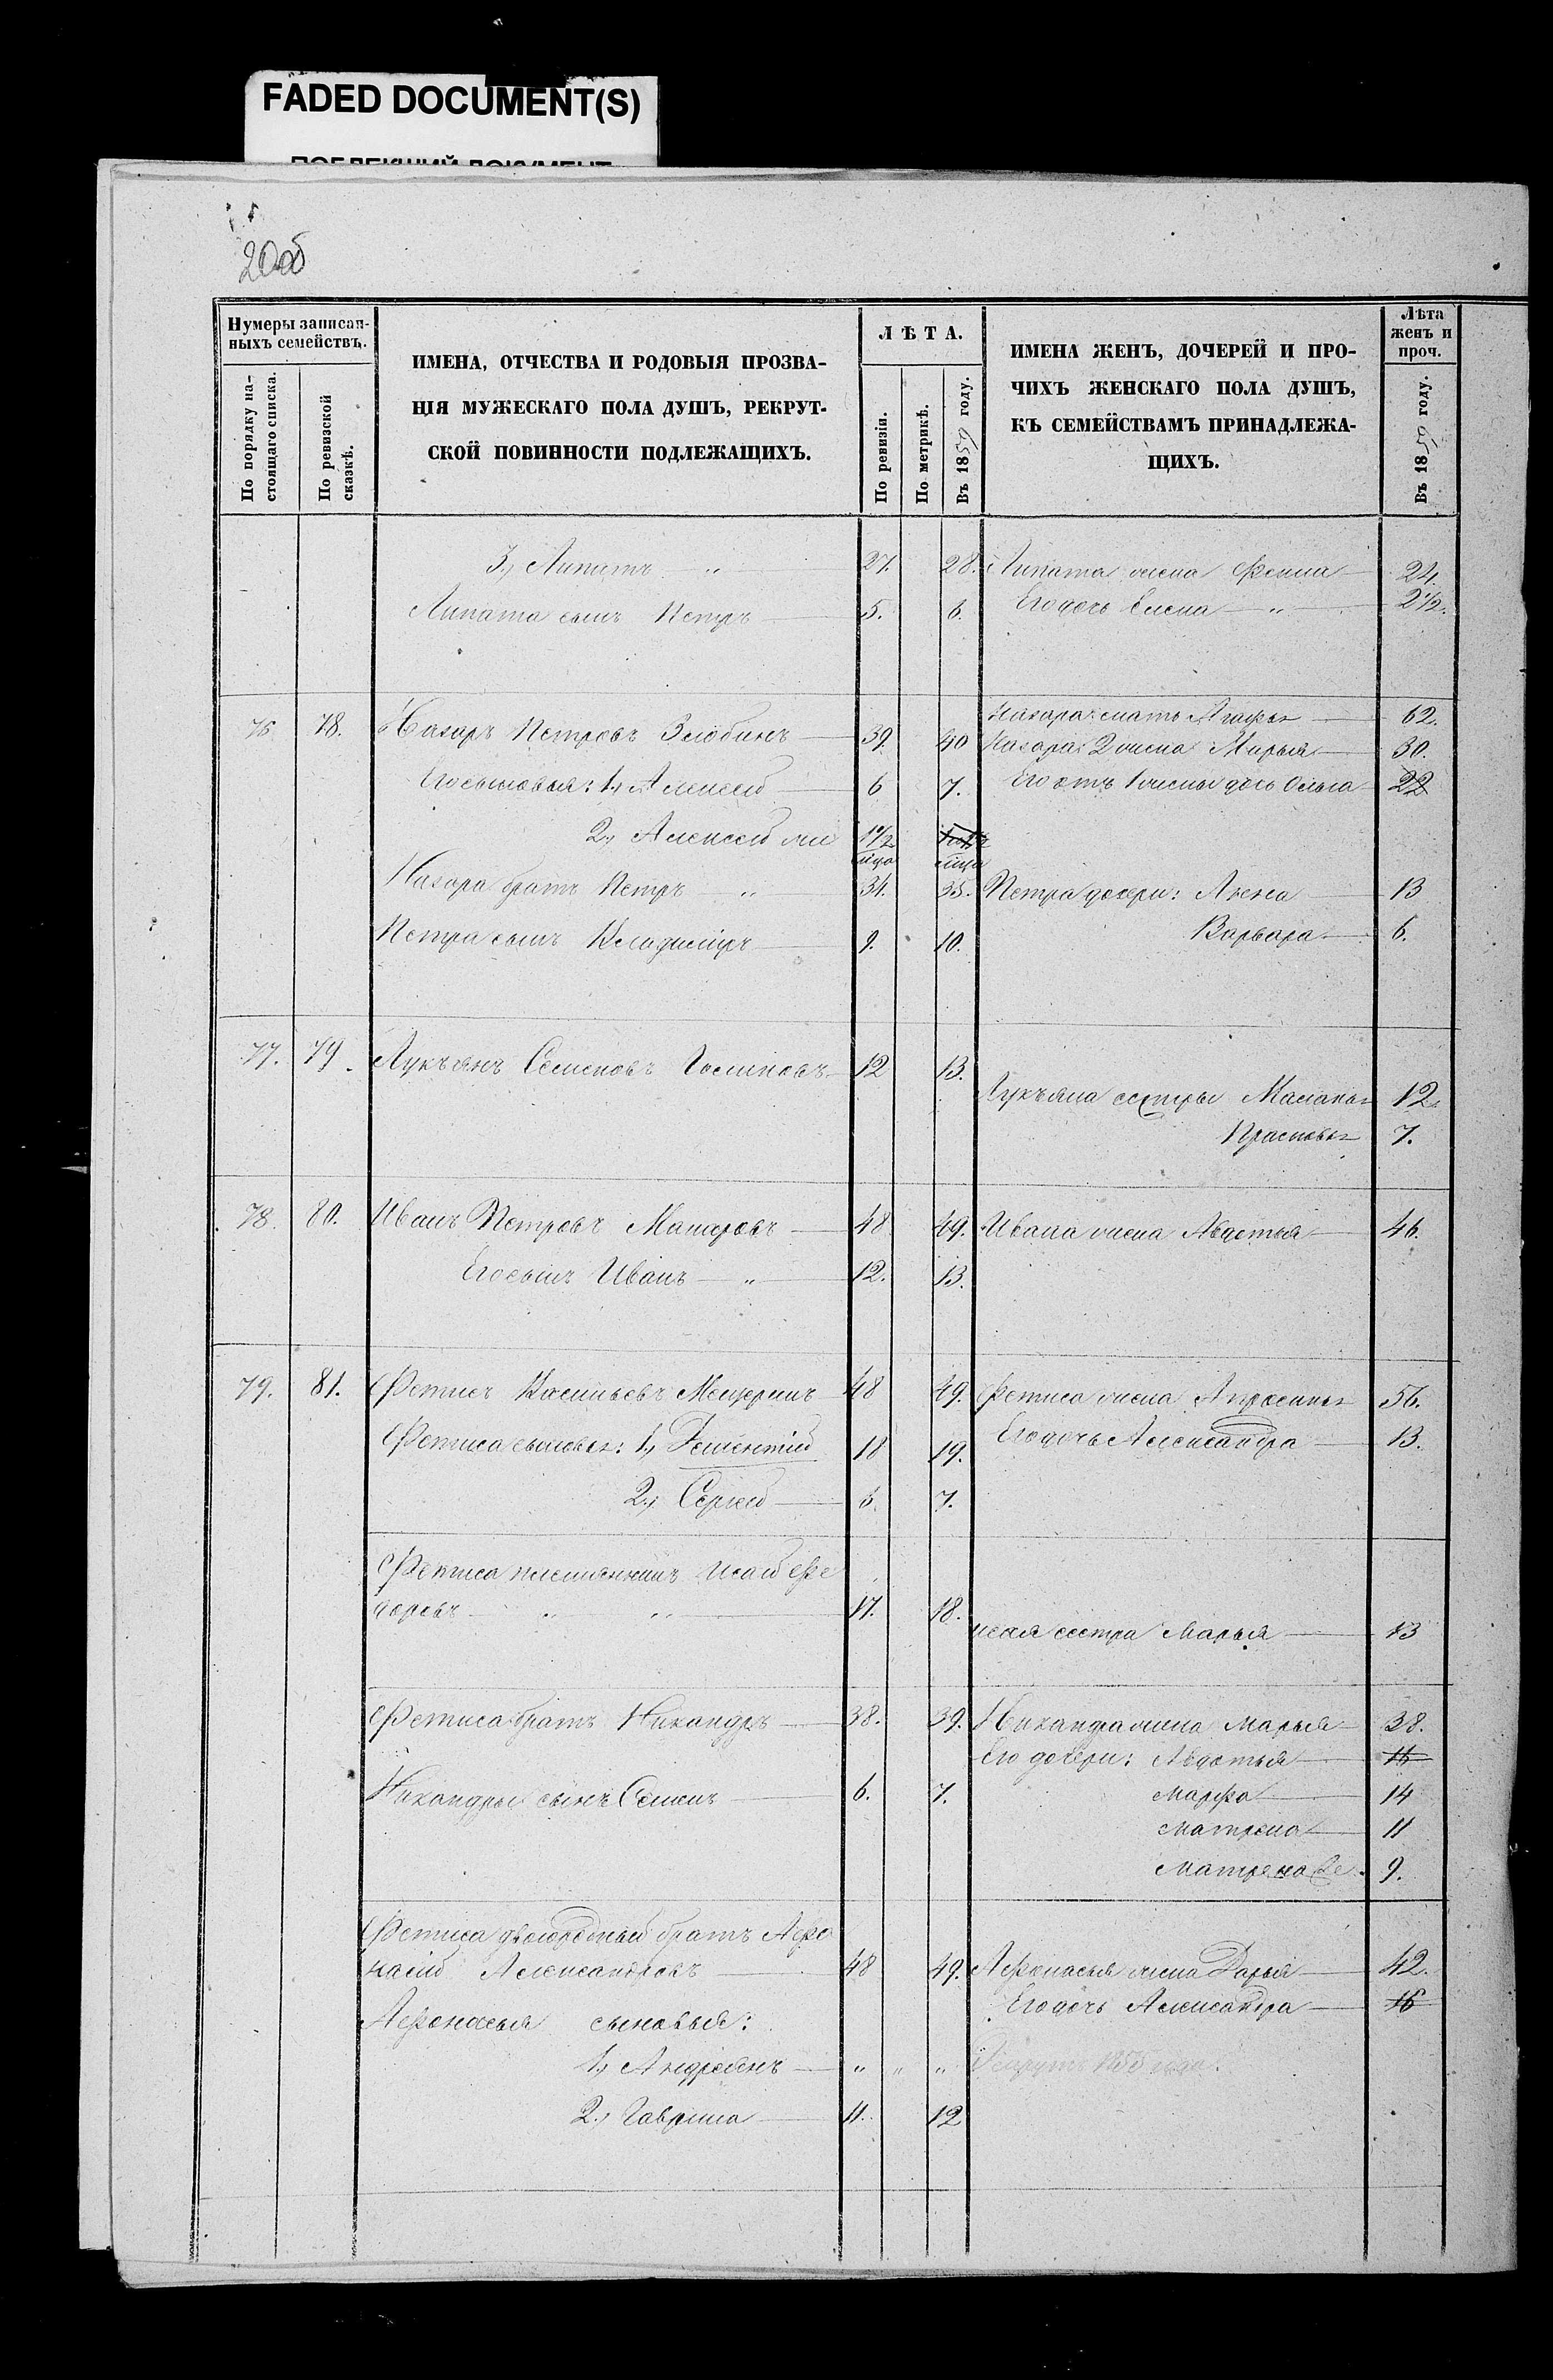 FADED DOCUMENT(S)
20об
Нумеры записан-
ныхъ семействъ.
По порядку на-
стоящаго списка.
По ревизской
сказкѣ.
ИМЕНА, ОТЧЕСТВА И РОДОВЫЯ ПРОЗВА-
НІЯ МУЖЕСКАГО ПОЛА ДУШЪ, РЕКРУТ-
СКОЙ ПОВИННОСТИ ПОДЛЕЖАЩИХЪ.
ЛѢТА.
По ревизіи.
По метрикѣ.
Въ 1859 году.
ИМЕНА ЖЕНЪ, ДОЧЕРЕЙ И ПРО-
ЧИХЪ ЖЕНСКАГО ПОЛА ДУШЪ,
КЪ СЕМЕЙСТВАМЪ ПРИНАДЛЕЖА-
ЩИХЪ.
Лѣта
женъ и
проч.
Въ 1859 году.
3, Липатъ — „ 27. 28. Липата жена Фекла — 24.
Липата сынъ Петръ — 5. 6. Его дочь Елена — „ — 2½.
Назара мать Агафья — 62.
76 78. Назаръ Петровъ Злобинъ — 39. 40 Назара 2 жена Марья — 30.
Его сыновья: 1, Алексей — 6 7. Его отъ 1 жены дочь Ольга 22
2, Алексей 1½
Назара братъ Петръ — „ 34. 35. Петра дочери: Анна — 13
Петра сынъ Владиміръ — 9. 10. Варвара — 6.
77. 79. Лукъянъ Семеновъ 12 13.
Лукъяна сестры Маланья 12.
Прасковья 7.
78. 80. Иванъ Петровъ — 48 49. Ивана жена Авдотья — 46.
Его сынъ Иванъ — „ — 12. 13.
79. 81. Фетисъ Васильевъ 48 49. Фетиса жена Апросинья 56.
Фетиса сыновья: 1, Дементій 18 19. Его дочь Александра — 13.
2, Сергей — 6. 7.
Фетиса племянникъ Исай Фе
доровъ — „ „ — 17. 18.
Исая сестра Марья — 13
Фетиса братъ Никандръ — 38. 39. Никандра жена Марья — 38.
Его дочери: Авдотья — 16
Никандры сынъ Семенъ — 6. 7. Марфа — 14
Матрена — 11
Матрена 9.
Фетиса двоюродный братъ Афо
насій Александровъ — 48 49. Афонасья жена Дарья — 42.
Его дочь Александра — 16
Афонасья сыновья:
1, Андреянъ — „ „ „
2, Гаврила — 11. 12